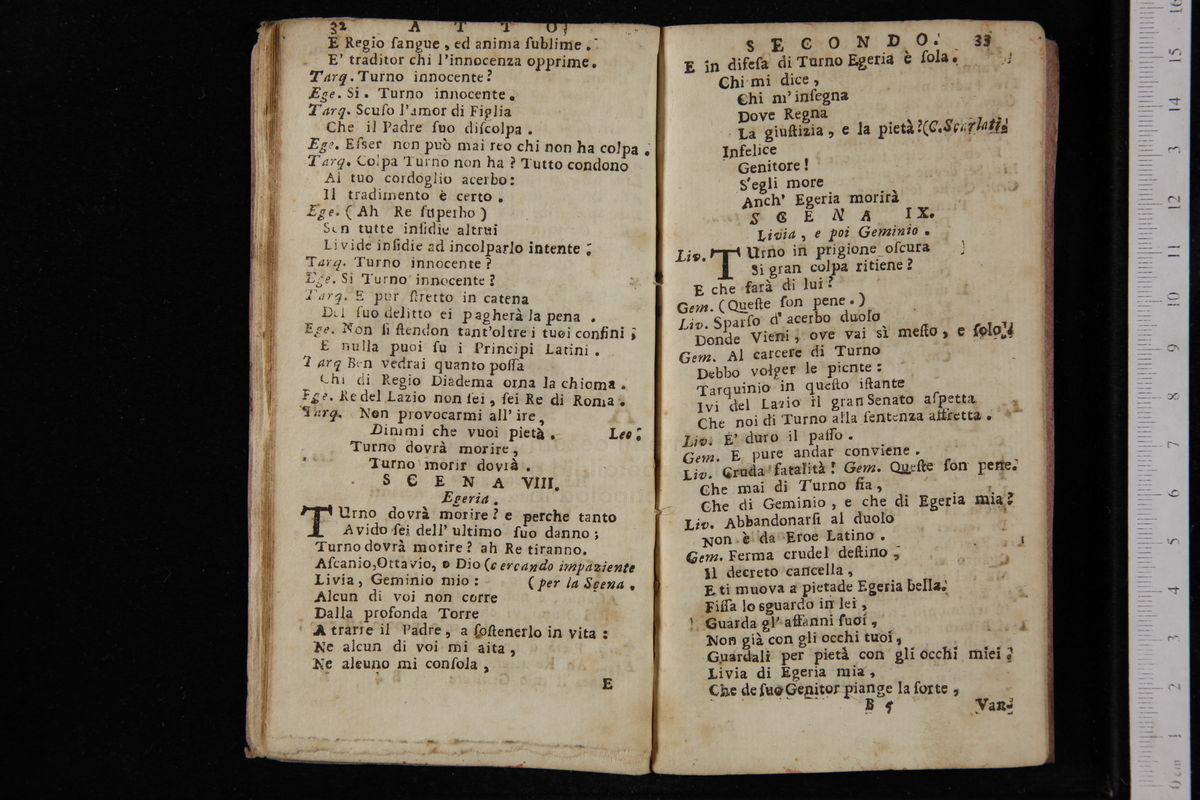 32 A T T O
E Regio ſangue, ed anima ſublime.
E' traditor chi l'innocenza opprime.
Tarq. Turno innocente?
Ege. Si. Turno innocente.
Tarq. Scuſo l'amor di Figlia
Che il Padre ſuo diſcolpa.
Ege. Eſſer non può mai reo chi non ha colpa.
Tarq. Colpa Turno non ha? Tutto condono
Al tuo cordoglio acerbo:
Il tradimento è certo.
Ege. (Ah Re ſuperbo)
Son tutte inſidie altrui
Livide inſidie ad incolparlo intente:
Tarq. Turno innocente?
Ege. Si Turno innocente?
Tarq. E pur ſtretto in catena
Del ſuo delitto ei pagherà la pena.
Ege. Non ſi ſtendon tant'oltre i tuoi confini;
E nulla puoi ſu i Principi Latini.
Tarq Ben vedrai quanto poſſa
Chi di Regio Diadema orna la chioma.
Ege. Re del Lazio non ſei, ſei Re di Roma.
Tarq. Non provocarmi all' ire,
Dimmi che vuoi pietà. Leo:
Turno dovrà morire,
Turno morir dovrà.
S C E N A VIII.
Egeria.
TUrno dovrà morire? e perche tanto
Avido ſei dell' ultimo ſuo danno;
Turno dovrà morire? ah Re tiranno.
Aſcanio, Ottavio, o Dio (cercando impaziente
Livia, Geminio mio: (per la Scena.
Alcun di voi non corre
Dalla profonda Torre
A trarre il Padre, a ſoſtenerlo in vita:
Ne alcun di voi mi aita,
Ne alcuno mi conſola,
E
S E C O N D O. 33
E in difeſa di Turno Egeria è ſola.
Chi mi dice,
Chi m'inſegna
Dove Regna
La giuſtizia, e la pietà? (C. Scarlatti
Infelice
Genitore!
S'egli more
Anch' Egeria morirà
S C E N A IX.
Livia, e poi Geminio.
Liv. TUrno in prigione oſcura
Si gran colpa ritiene?
E che farà di lui?
Gem. (Queſte ſon pene.)
Liv. Sparſo d' acerbo duolo
Donde Vieni, ove vai sì meſto, e ſolo?
Gem. Al carcere di Turno
Debbo volger le piente:
Tarquinio in queſto iſtante
Ivi del Lazio il gran Senato aſpetta
Che noi di Turno alla ſentenza affretta.
Liv. E' duro il paſſo.
Gem. E pure andar conviene.
Liv. Cruda fatalità! Gem. Queſte ſon pene.
Che mai di Turno fia,
Che di Geminio, e che di Egeria mia?
Liv. Abbandonarſi al duolo
Non è da Eroe Latino.
Gem. Ferma crudel deſtino,
Il decreto cancella,
E ti muova a pietade Egeria bella.
Fiſſa lo sguardo in lei,
Guarda gl' affanni ſuoi,
Non già con gli occhi tuoi,
Guardali per pietà con gli occhi miei:
Livia di Egeria mia,
Che de ſuo Genitor piange la ſorte,
B 5 Van-
16 15 14 13 12 11 10 9 8 7 6 5 4 3 2 1 0 cm